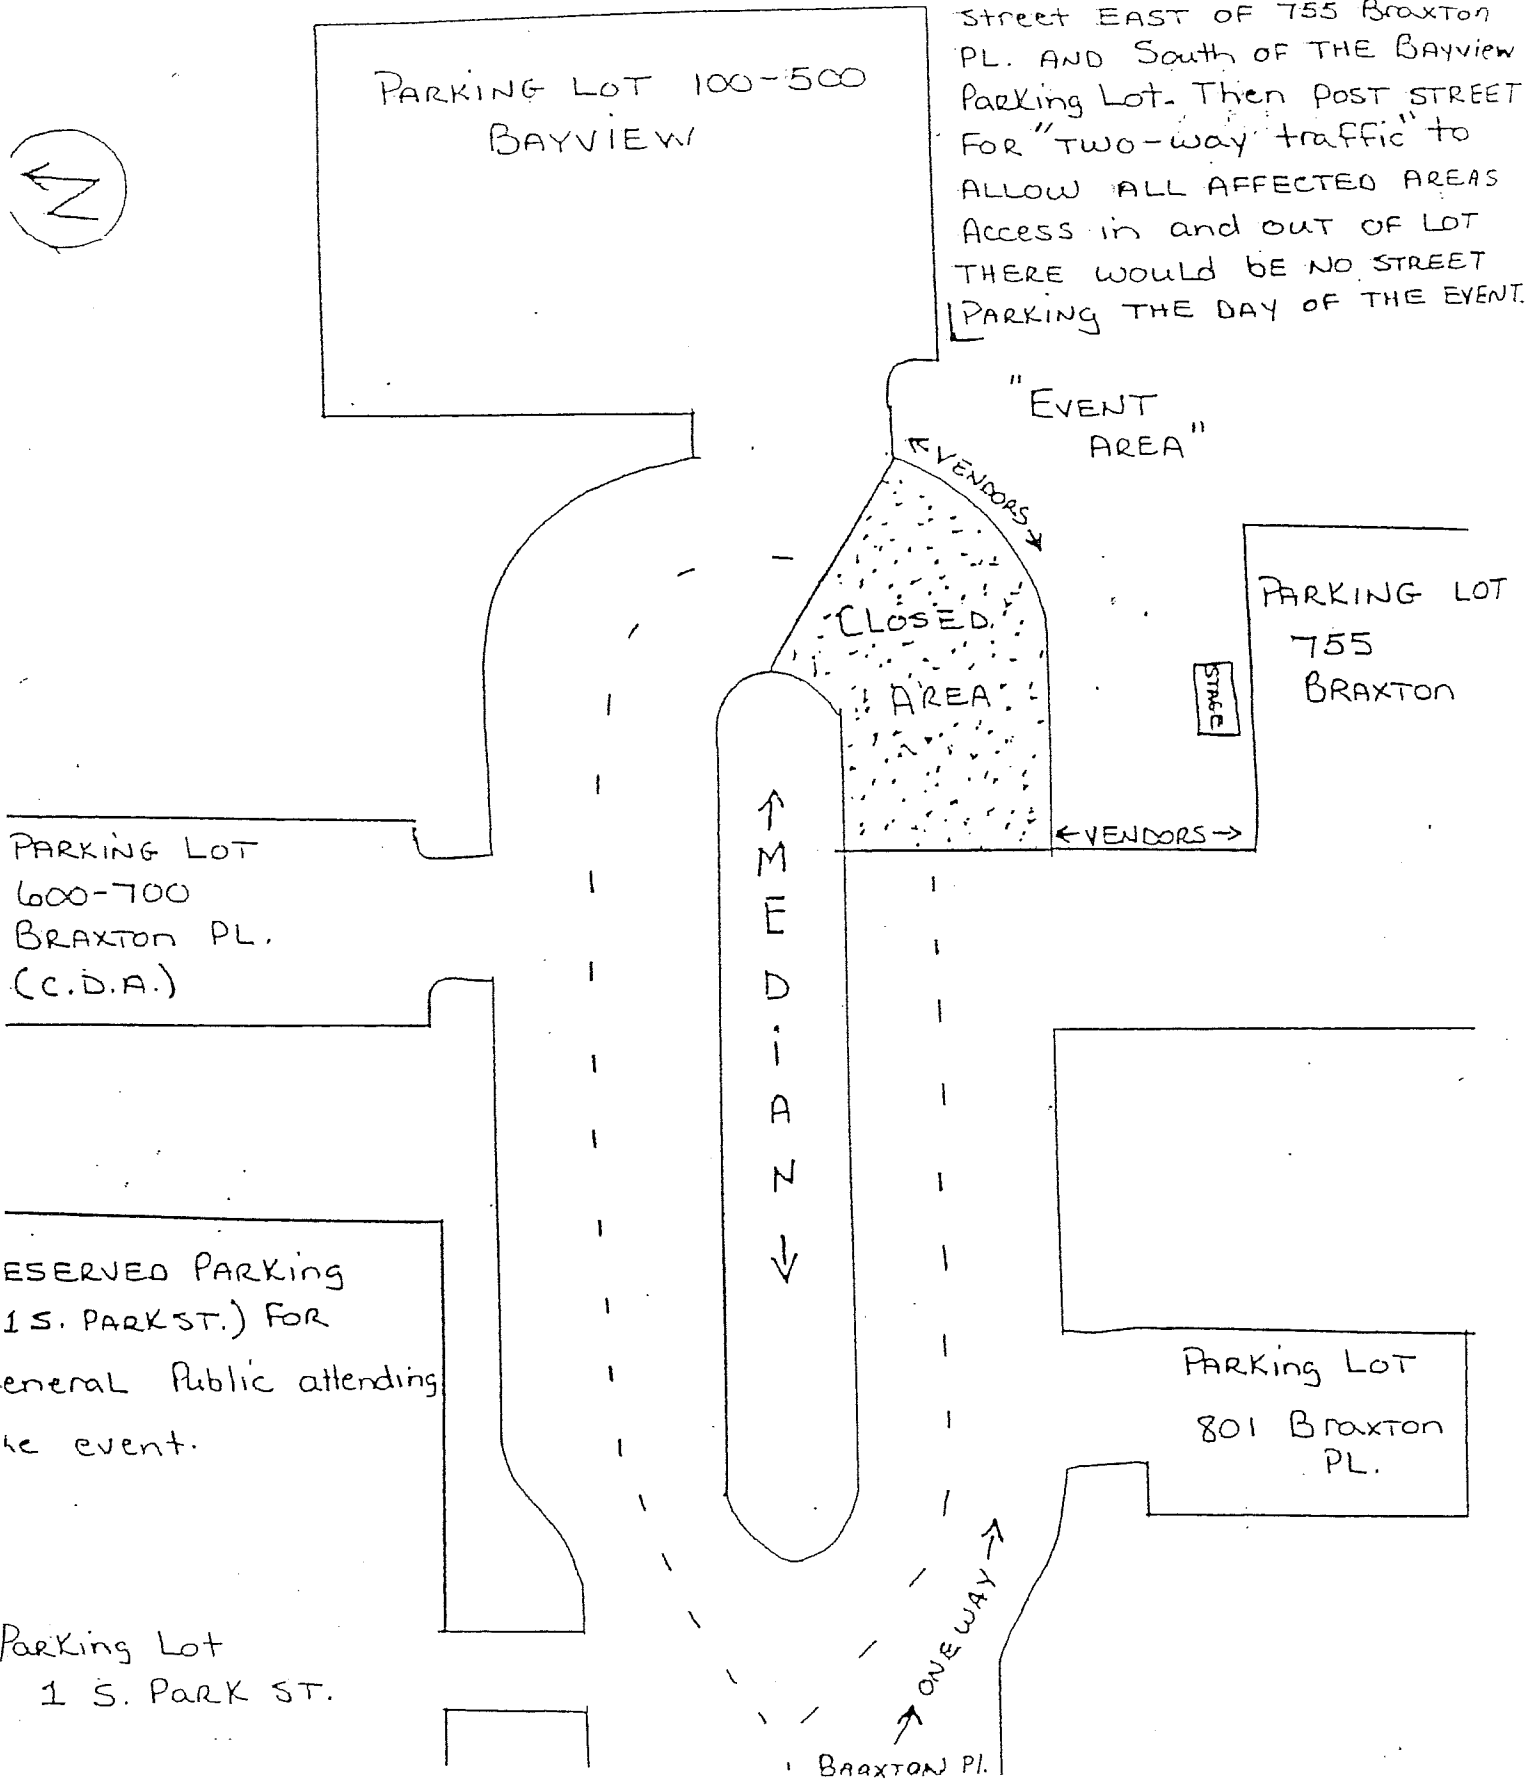 Street EAST OF 755 Braxton
PL. AND South OF THE Bayview
Parking Lot. Then POST STREET
FOR "TWO-way traffic" to
ALLOW ALL AFFECTED AREAS
Access in and out OF LOT
THERE WOULD BE NO STREET
PARKING THE DAY OF THE EVENT.
PARKING LOT 100-500
BAYVIEW
N
"EVENT
AREA"
VENDORS
CLOSED
AREA
PARKING LOT
755
BRAXTON
STAGE
VENDORS
MEDIAN
PARKING LOT
600-700
BRAXTON PL.
(C.D.A.)
ESERVED PARKING
1 S. PARK ST.) FOR
eneral Public attending
he event.
Parking Lot
801 Braxton
PL.
Parking Lot
1 S. PARK ST.
ONE WAY
BRAXTON Pl.